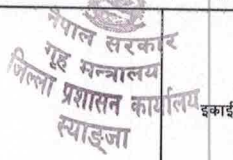 नेपाल सरकार
गृह मन्त्रालय
जिल्ला प्रशासन कार्यालय
स्याङ्जा
इकाई